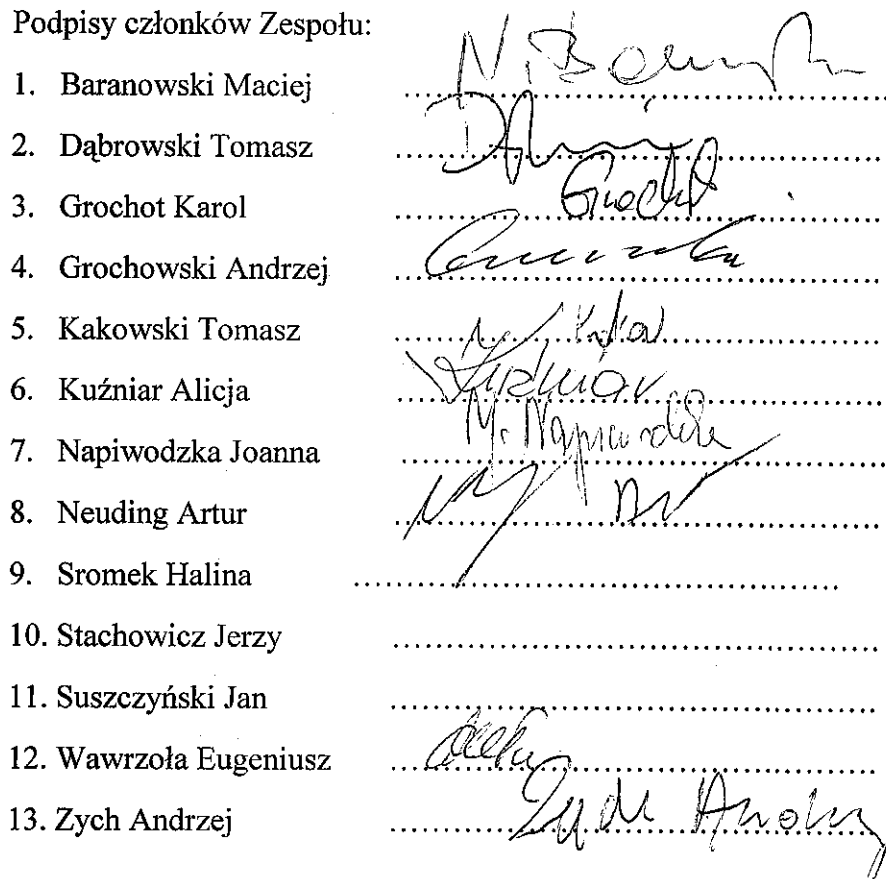 Podpisy członków Zespołu:
1. Baranowski Maciej
2. Dąbrowski Tomasz
3. Grochot Karol
4. Grochowski Andrzej
5. Kakowski Tomasz
6. Kuźniar Alicja
Kuźniar
7. Napiwodzka Joanna
8. Neuding Artur
9. Sromek Halina
10. Stachowicz Jerzy
11. Suszczyński Jan
12. Wawrzoła Eugeniusz
13. Zych Andrzej